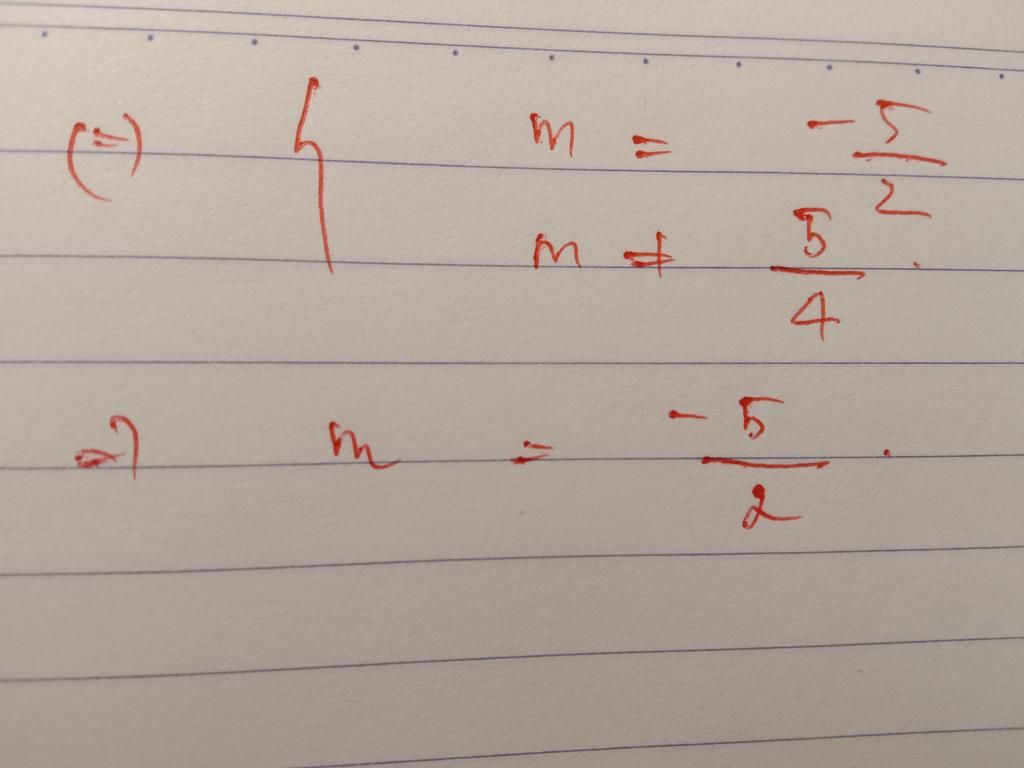 (=) { m = - 5/2
m ≠ 5/4 .
=) m = - 5/2 .